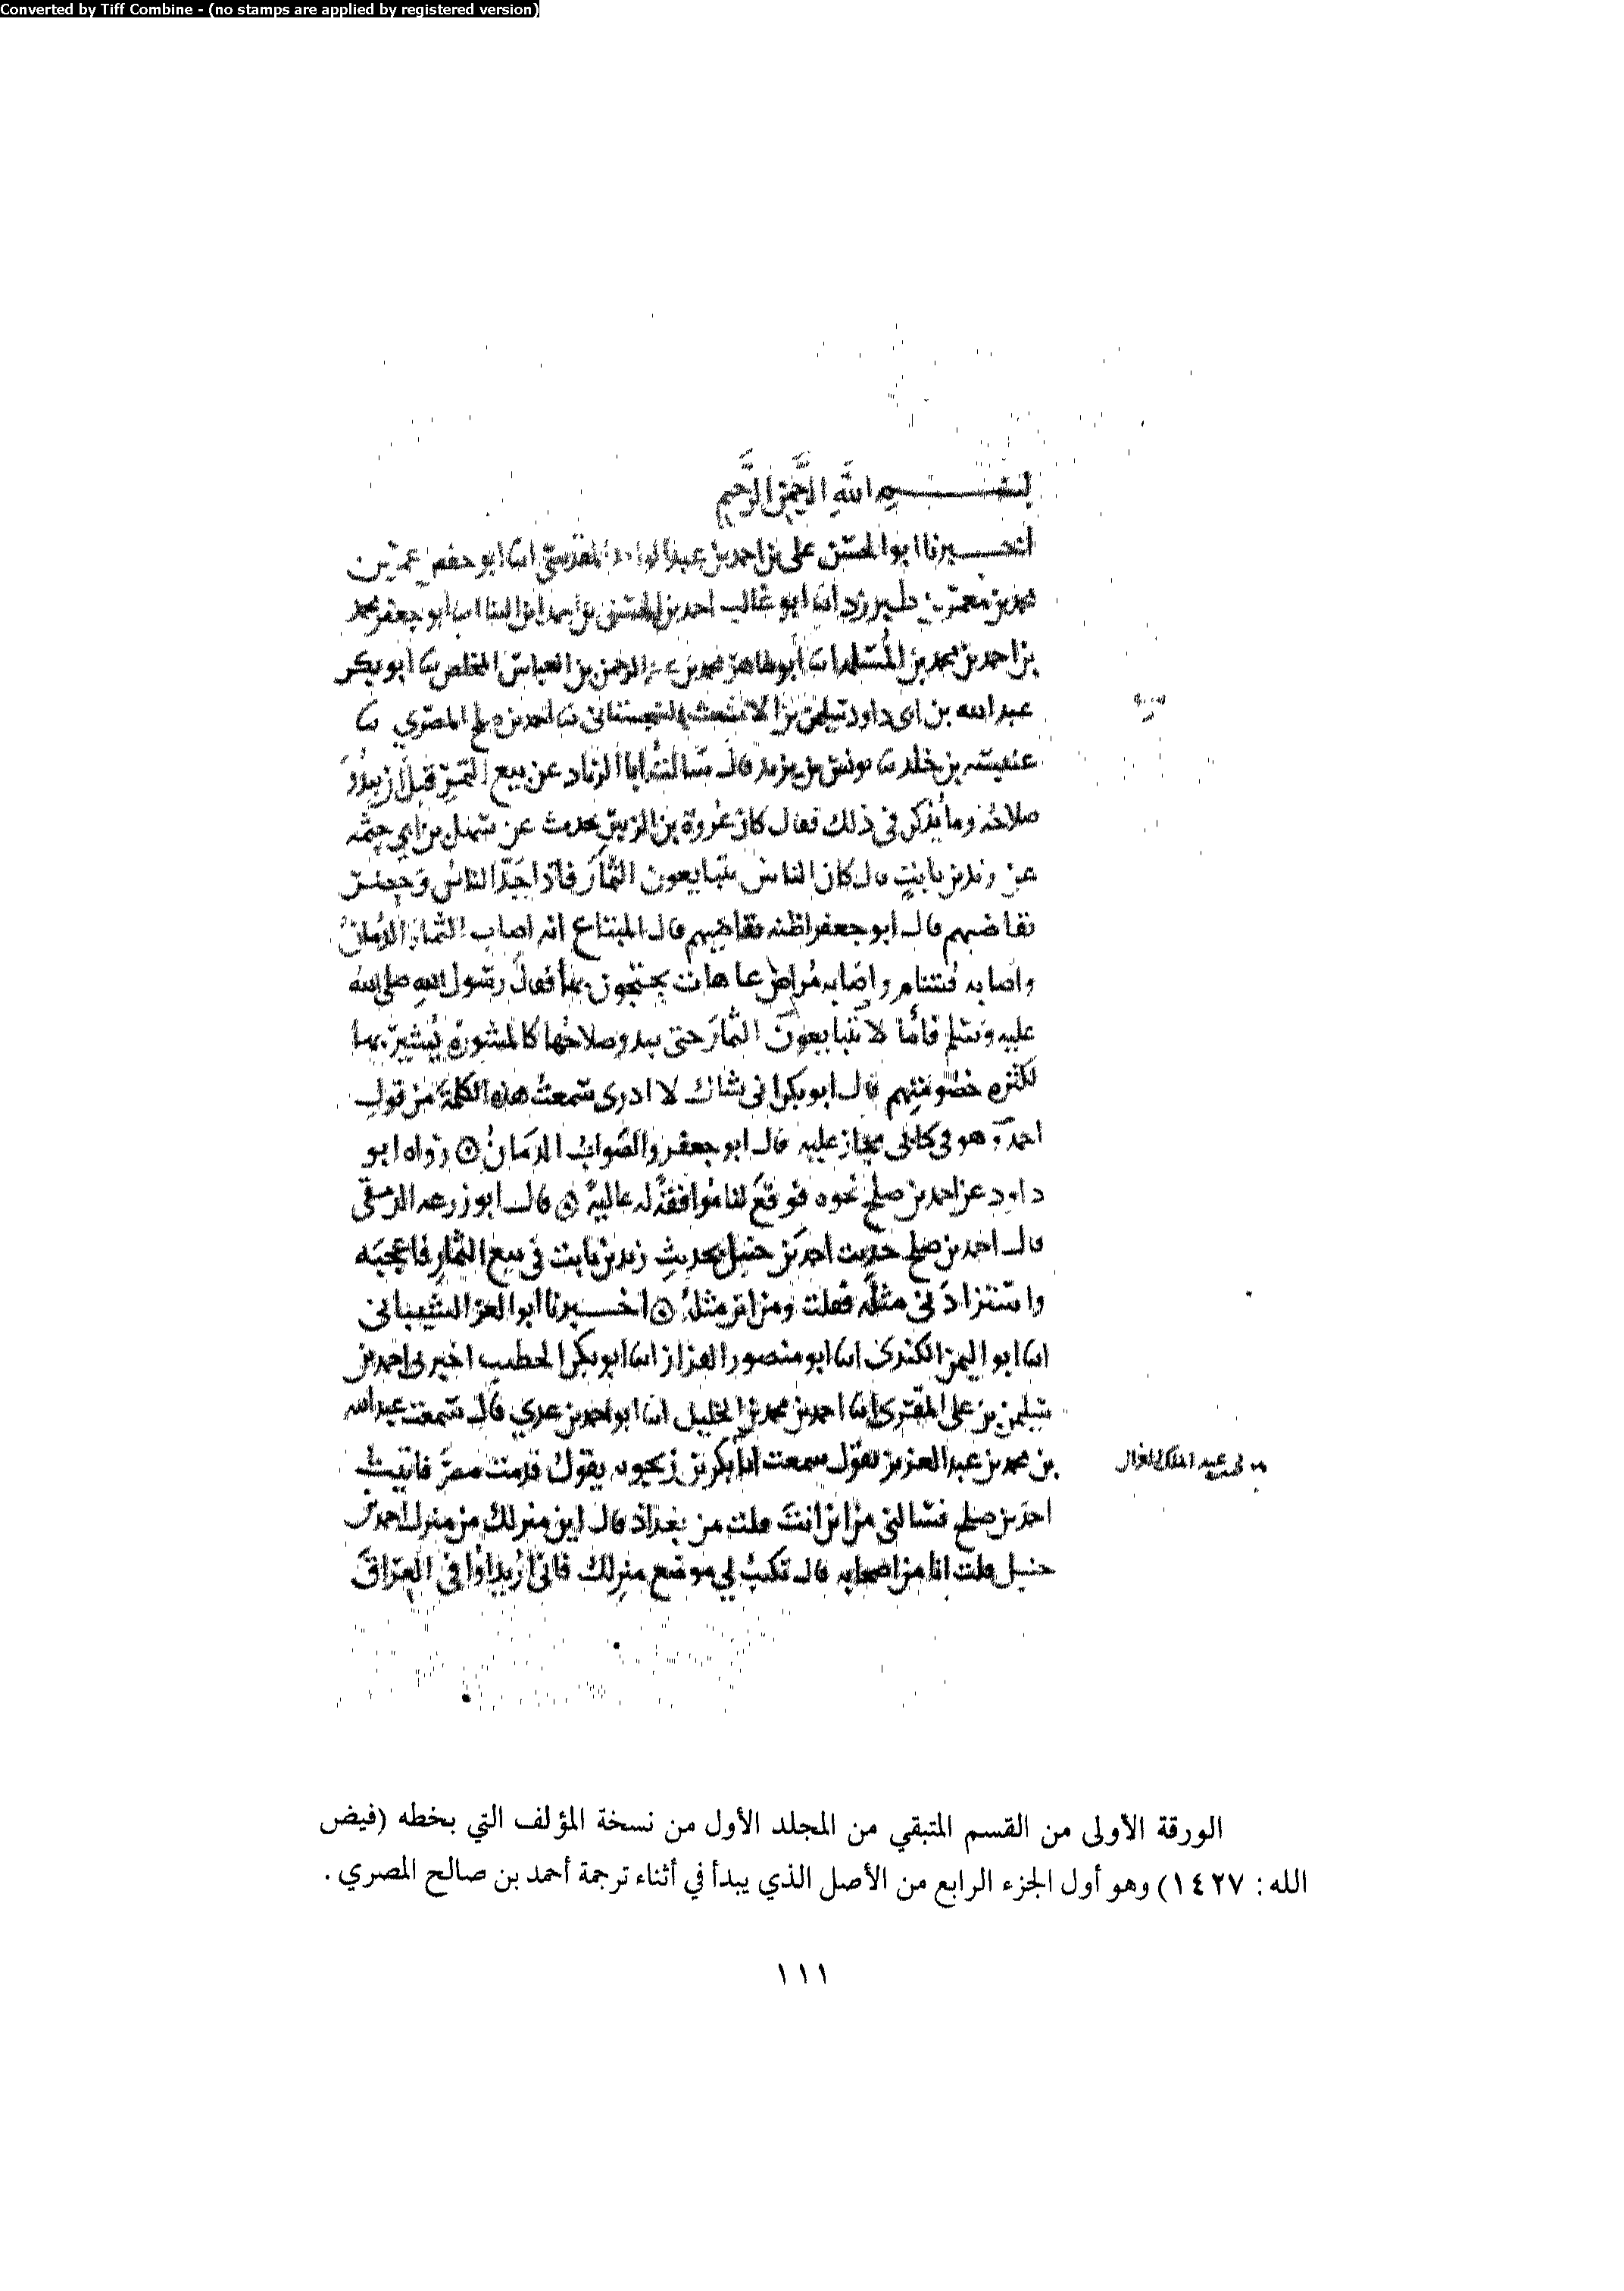 Converted by Tiff Combine - (no stamps are applied by registered version)
بسم الله الرحمن الرحيم
أخبرنا ابو الحسن على بن احمد بن عبد الواحد المقدسي انا ابو حفص عمر بن
محمد بن معمر بن طبرزد انا ابو غالب احمد بن الحسن بن احمد ابن البنا انا ابو جعفر محمد
بن احمد بن محمد بن المسلمة انا أبو طاهر محمد بن عبد الرحمن بن العباس المخلص نا ابو بكر
عبد الله بن ابى داود سليمن بن الاشعث السجستانى نا احمد بن صلح المصري نا
عنبسة بن خلد نا يونس بن يزيد قال سالت ابا الزناد عن بيع الثمر قبل ان يبدو
صلاحه وما يذكر فى ذلك فقال كان عروة بن الزبير يحدث عن سهل بن ابي حثمه
عن زيد بن ثابت قال كان الناس يتبايعون الثمار فاذا جد الناس وحضر
تقاضيهم قال ابو جعفر اظنه تقاضيهم قال المبتاع انه اصاب الثمار الدمان
واصابه قشام واصابه مراض عاهات يحتجون بها فقال رسول الله صلى الله
عليه وسلم فاما لا تتبايعون الثمار حتى يبدو صلاحها كالمشورة يشير بها
لكثره خصومتهم قال ابو بكر انى شاك لا ادرى سمعت هذه الكلمة من قول
احمد وهو فى كتابى مجاز عليه قال ابو جعفر والصواب الدمان رواه ابو
داود عن احمد بن صلح نحوه فوقع لنا موافقة له عالية قال ابو زرعه الدمشقى
قال احمد بن صلح حدثت احمد بن حنبل بحديث زيد بن ثابت فى بيع الثمار فاعجبه
واستزادنى مثله فقلت ومن اين مثله اخبرنا ابو العز الشيبانى
انا ابو اليمن الكندى انا ابو منصور القزاز انا ابو بكر الخطيب اخبرنى احمد بن
سليمن بن على المقرى انا احمد بن محمد بن الخليل انا ابو احمد بن عدي قال سمعت عبد الله
بن محمد بن عبد العزيز يقول سمعت ابا بكر بن زنجويه يقول قدمت مصر فاتيت
احمد بن صلح فسالنى من اين انت قلت من بغداد قال اين منزلك من منزل احمد بن
حنبل قلت انا من اصحابه قال تكتب لي موضع منزلك فانى اريد اوافى العراق
عبد الملك الغزال
الورقة الأولى من القسم المتبقي من المجلد الأول من نسخة المؤلف التي بخطه (فيض
الله : ١٤٢٧) وهو أول الجزء الرابع من الأصل الذي يبدأ في أثناء ترجمة أحمد بن صالح المصري .
١١١